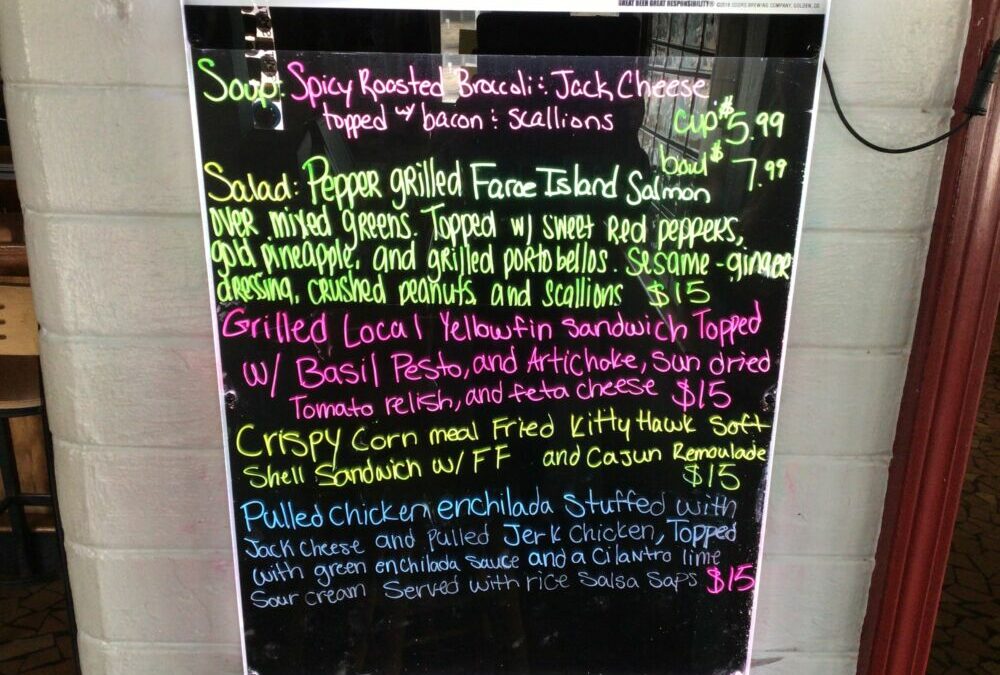 GREAT BEER GREAT RESPONSIBILITY® ©2016 COORS BREWING COMPANY, GOLDEN, CO
Soup: Spicy Roasted Broccoli & Jack Cheese
topped w/ bacon & scallions
cup $5.99
bowl $7.99
Salad: Pepper grilled Faroe Island Salmon
over mixed greens. Topped w/ sweet Red peppers,
gold pineapple, and grilled portobellos. Sesame-ginger
dressing, crushed peanuts and scallions $15
Grilled Local Yellowfin Sandwich Topped
w/ Basil Pesto, and Artichoke, Sun dried
Tomato relish, and feta cheese $15
Crispy Corn meal Fried Kitty Hawk Soft
Shell Sandwich w/ FF and Cajun Remoulade
$15
Pulled chicken enchilada Stuffed with
Jack cheese and pulled Jerk Chicken, Topped
with green enchilada sauce and a Cilantro lime
Sour cream Served with rice Salsa Saps $15